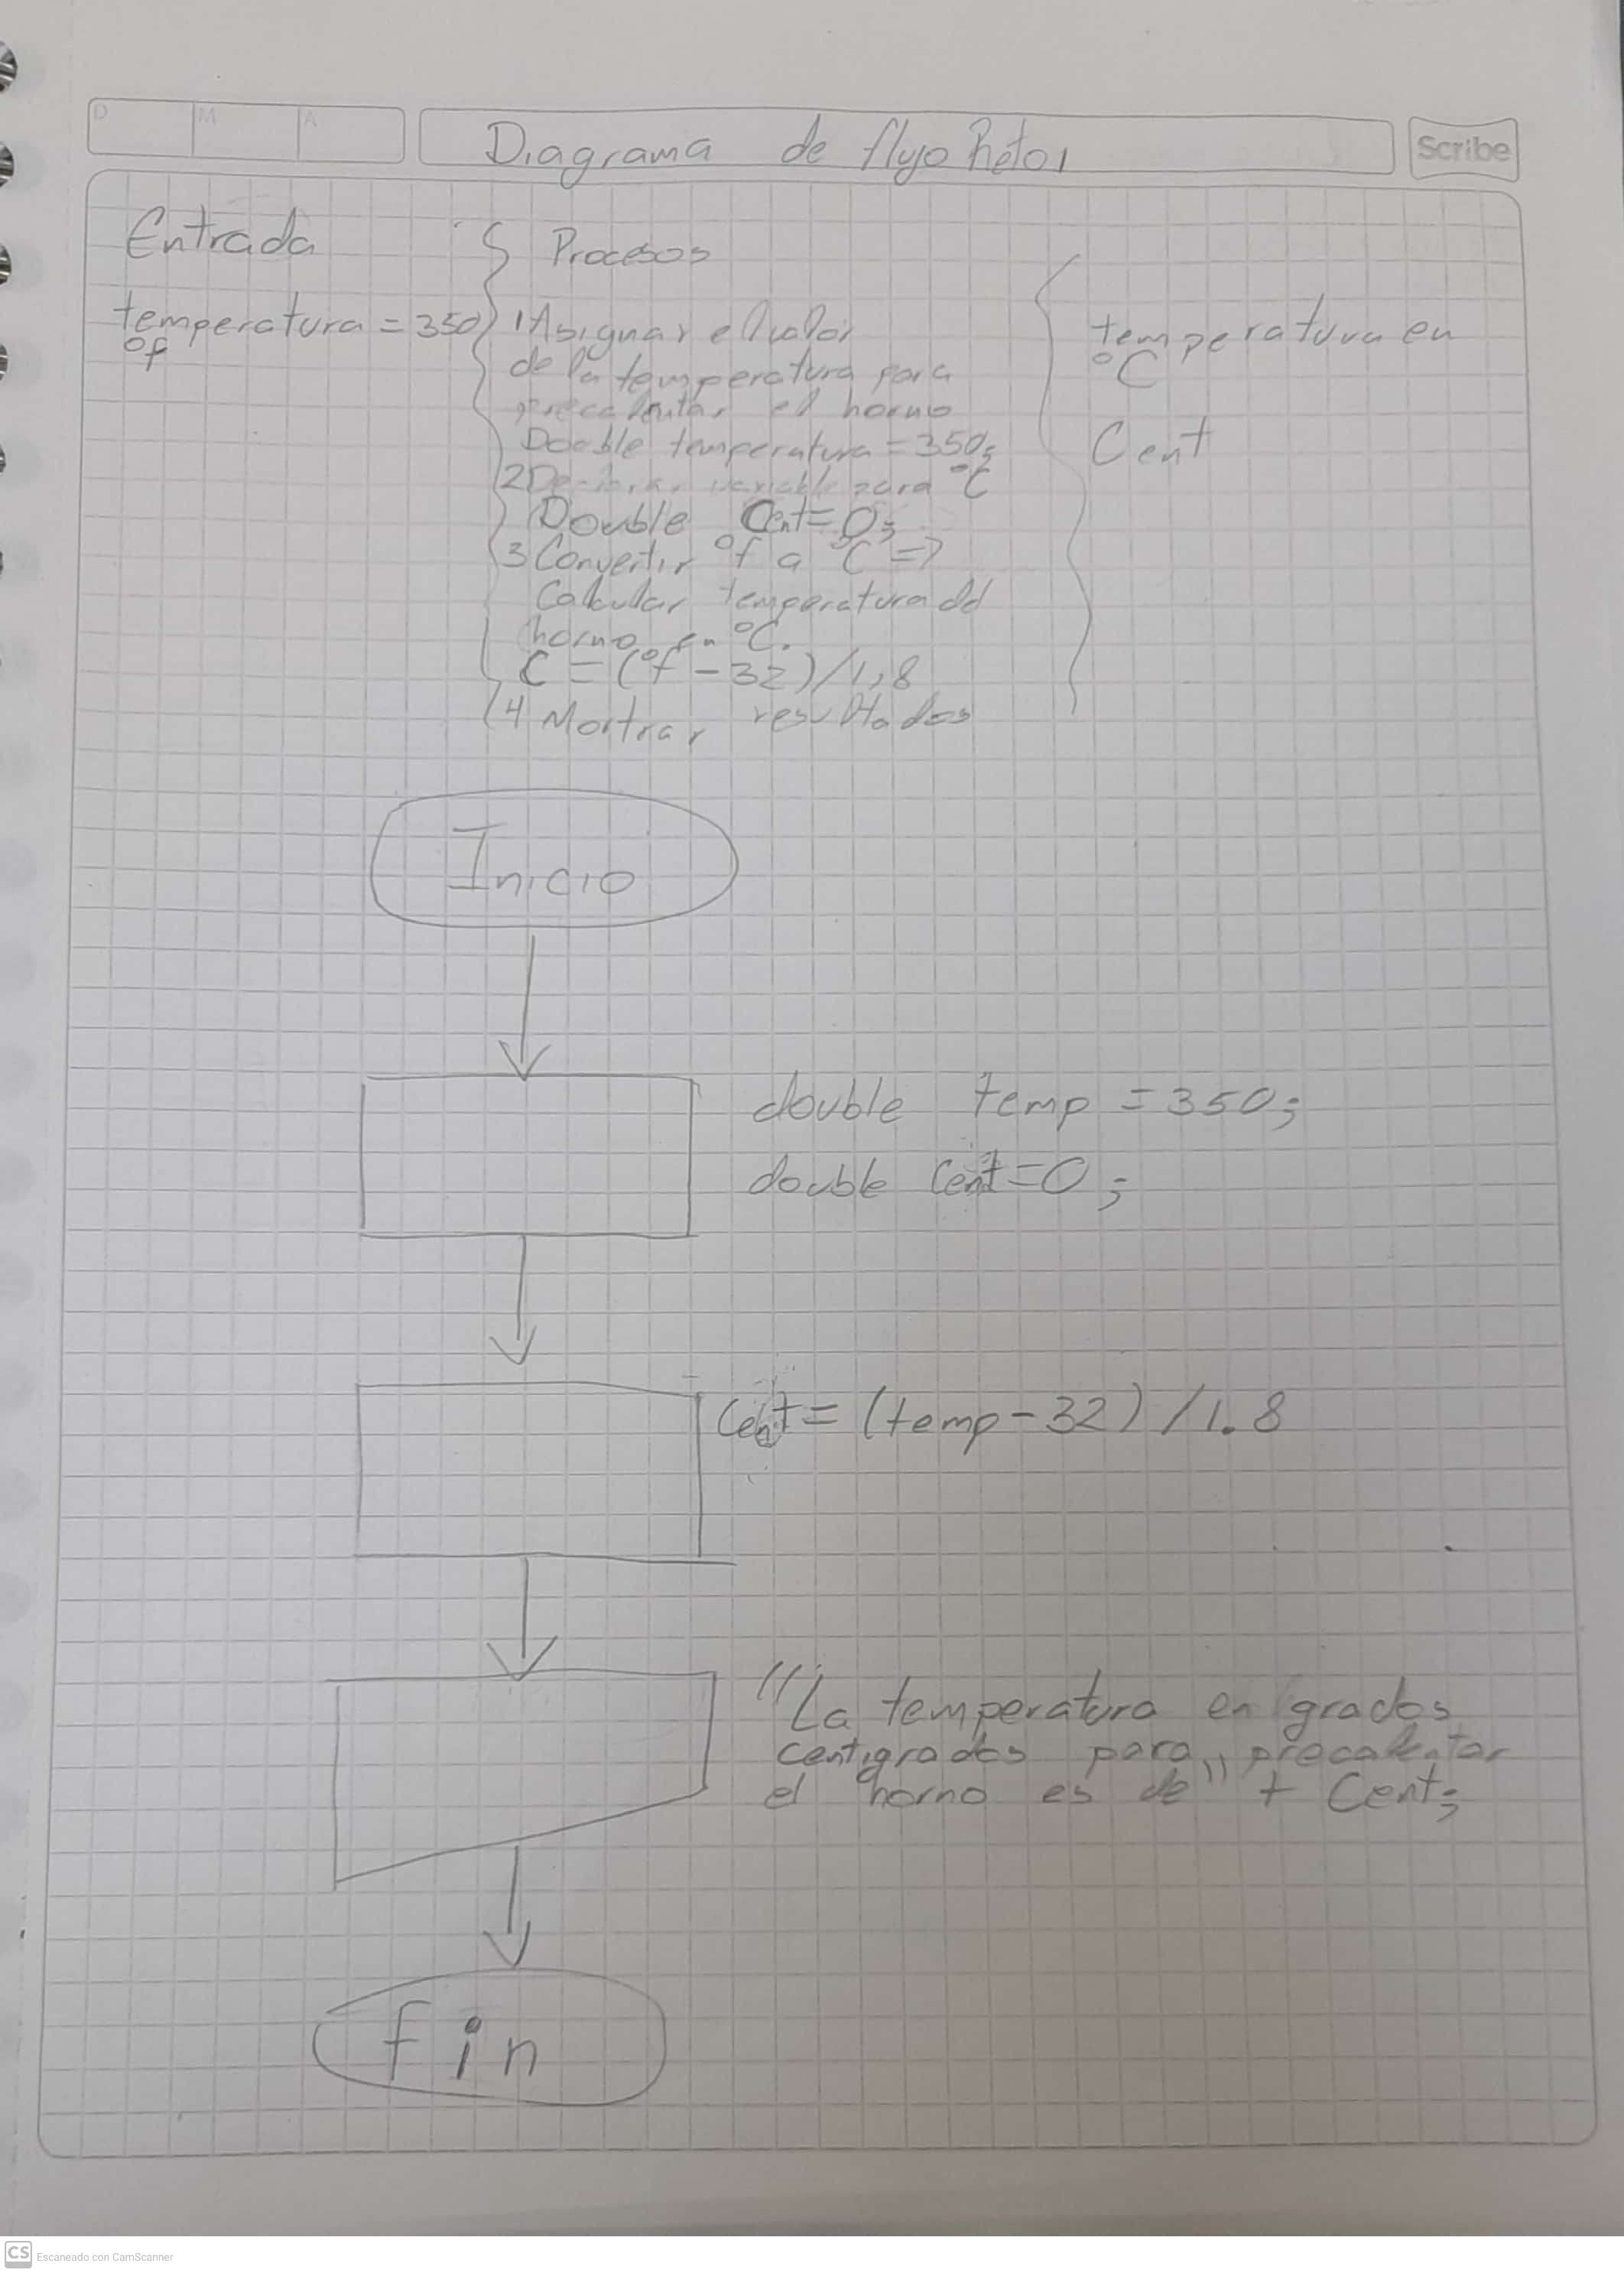 D M A
Diagrama de flujo Reto 1
Scribe
Entrada
temperatura = 350
°f
Procesos
1 Asignar el valor
de la temperatura para
precalentar el horno
Double temperatura = 350;
2 Declarar variable para °C
Double Cent = 0;
3 Convertir °f a °C =>
Calcular temperatura del
horno en °C.
C = (°f - 32) / 1,8
4 Mostrar resultados
temperatura en
°C
Cent
Inicio
double temp = 350;
double Cent = 0;
Cent = (temp - 32) / 1.8
"La temperatura en grados
centigrados para precalentar
el horno es de" + Cent;
fin
CS Escaneado con CamScanner